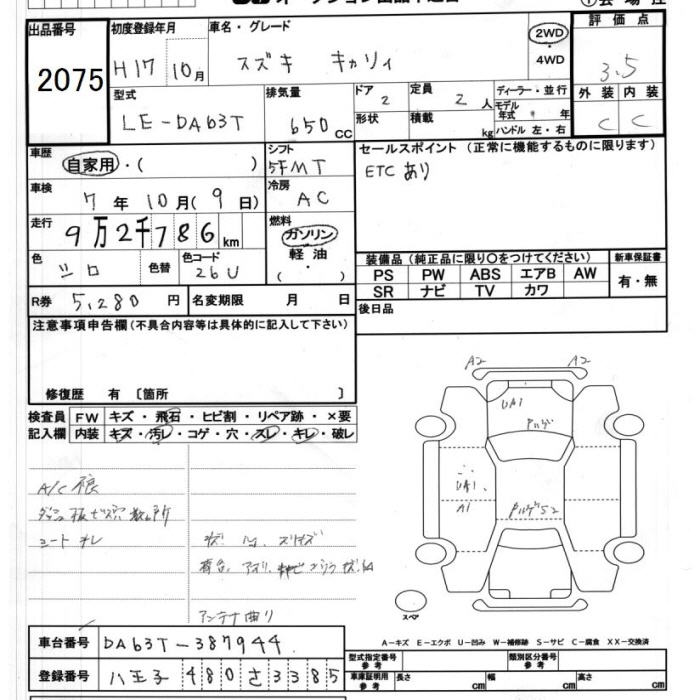 出品番号 2075
初度登録年月 H17 10月
車名・グレード スズキ キャリィ
2WD・4WD
評価点 3.5
外装 C 内装 C
型式 LE-DA63T
排気量 650cc
ドア 2 形状
定員 2人 積載 kg
ディーラー・並行
モデル年式 年
ハンドル 左・右
車歴 自家用・( )
シフト 5FMT
セールスポイント (正常に機能するものに限ります)
ETC あり
車検 7年10月(9日)
冷房 AC
走行 9万2千786km
燃料 ガソリン・軽油・
色 シロ 色替 色コード 26U
装備品 (純正品に限り○をつけてください)
新車保証書 有・無
PS PW ABS エアB AW
SR ナビ TV カワ
R券 5,280円 名変期限 月 日
後日品
注意事項申告欄(不具合内容等は具体的に記入して下さい)
修復歴 有 〔箇所 〕
検査員記入欄
FW キズ・飛石・ヒビ割・リペア跡・×要
内装 キズ・汚レ・コゲ・穴・スレ・キレ・破レ
A2 A2
UA1
UA1
A1
A/C
シートキレ
アンテナ曲り
スペア
A-キズ E-エクボ U-凹み W-補修跡 S-サビ C-腐食 XX-交換済
車台番号 DA63T-387944
登録番号 八王子 480さ3385
型式指定番号 参考 類別区分番号 参考
車庫証明用 参考 長さ cm 幅 cm 高さ cm